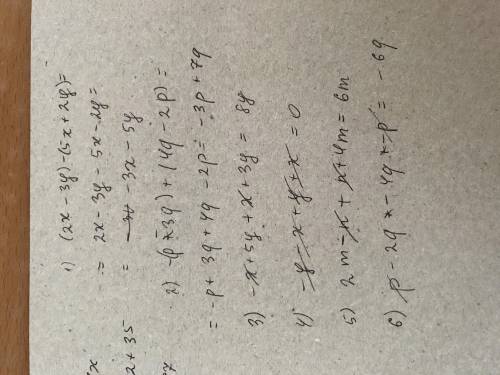 1) (2x - 3y) - (5x + 2y) =
= 2x - 3y - 5x - 2y =
= -3x - 5y
2) -(p - 3q) + (4q - 2p) =
= -p + 3q + 4q - 2p = -3p + 7q
3) -x + 5y + x + 3y = 8y
4) -y - x + y + x = 0
5) 2m - n + n + 4m = 6m
6) p - 2q - 4q - p = -6q
2 + 35